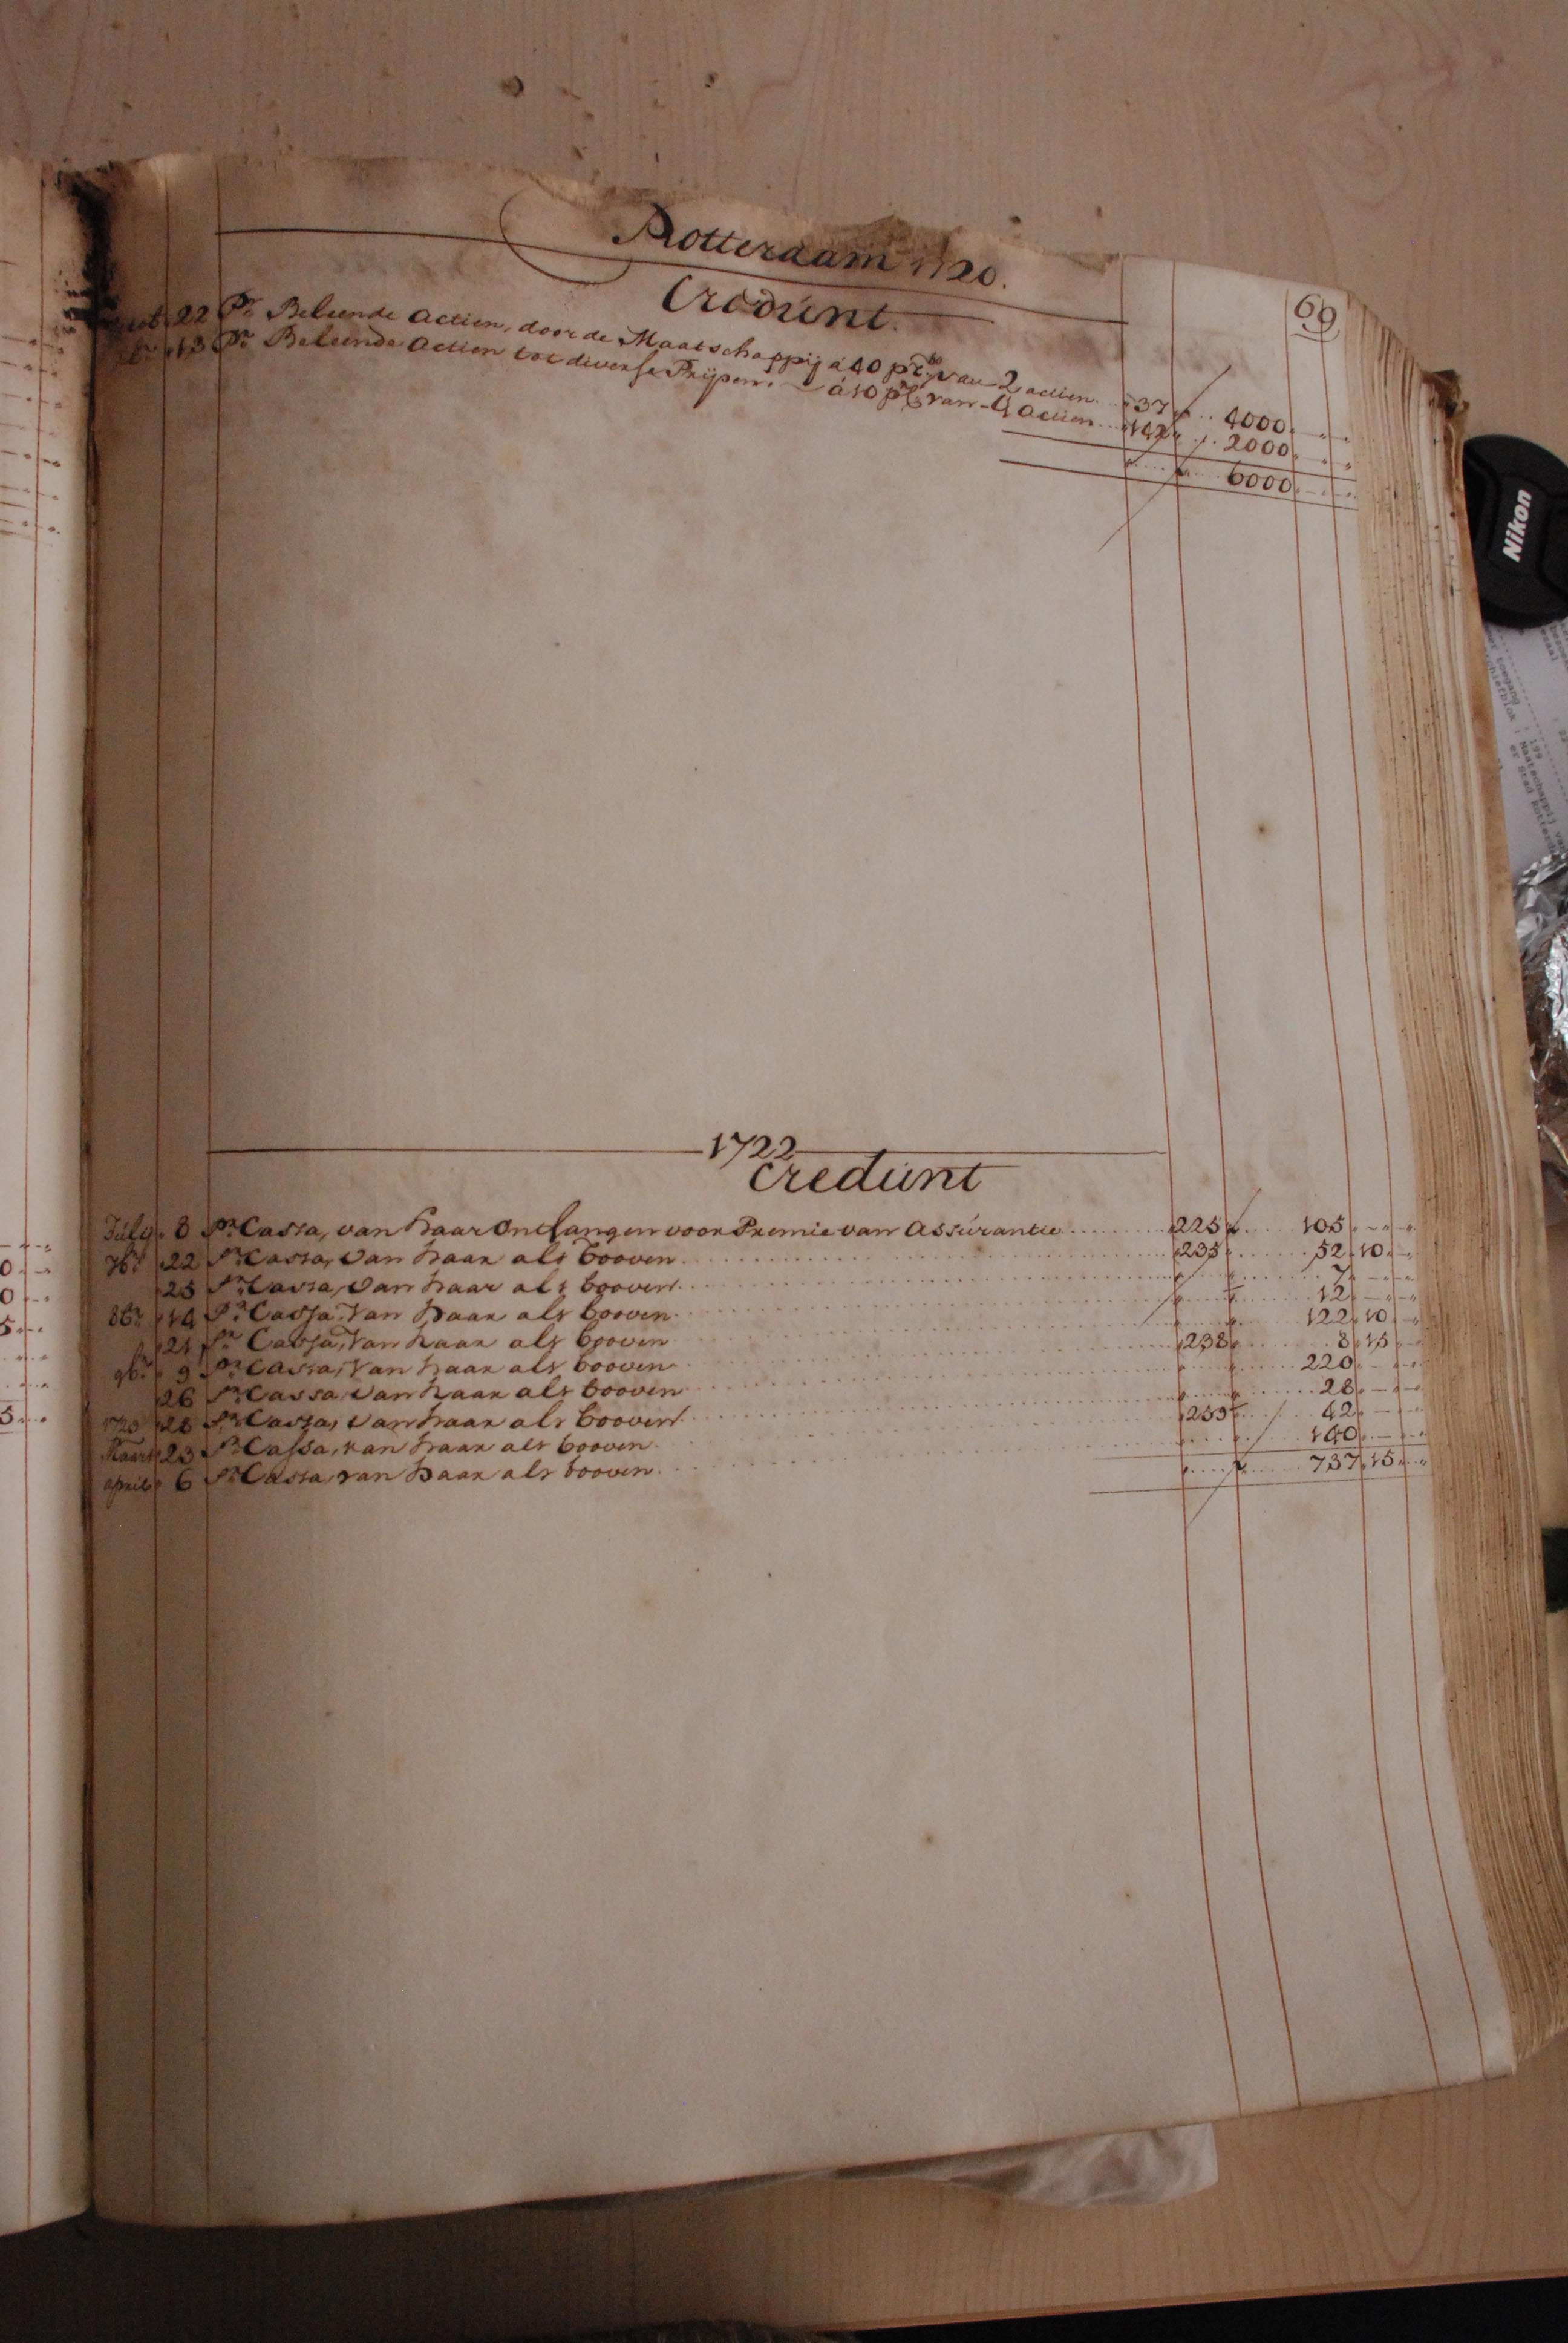 Rotterdam 1720.
69
Credunt.
22 Pr. Beleende Actien, door de Maatschappij á 40 pCto van 2 actien 37 4000
13 Pr. Beleende Actien tot diverse Prijsen. á 10 pCto van 4 actien 142 2000
6000
1722
Credunt
July 8 Pr. Cassa, van haar ontfangen voor Premie van Assurantie 225 105
7br. 22 Pr. Cassa, van haar als booven 235 52 10
25 Pr. Cassa, van haar als booven 7
8br. 14 Pr. Cassa, van haar als booven 12
21 Pr. Cassa, van haar als booven 122 10
9br. 9 Pr. Cassa, van haar als booven 238 8 15
26 Pr. Cassa, van haar als booven 220
1723 28 Pr. Cassa, van haar als booven 28
Maart 23 Pr. Cassa, van haar als booven 259 42
april 6 Pr. Cassa, van haar als booven 140
737 15
Nikon